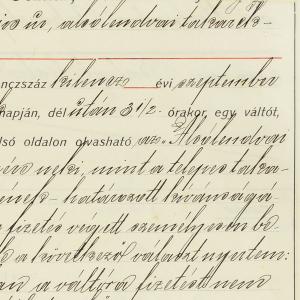 os úr, alsólendvai takarék-
nczszáz kilencz évi szeptember
napján, dél után 3 1/2 órakor, egy váltót,
lső oldalon olvasható az „Alsólendvai
neki, mint a telepes taka-
határozott kivánságá-
fizetés végett személyesen be-
a következő választ nyertem:
a váltóra fizetést nem